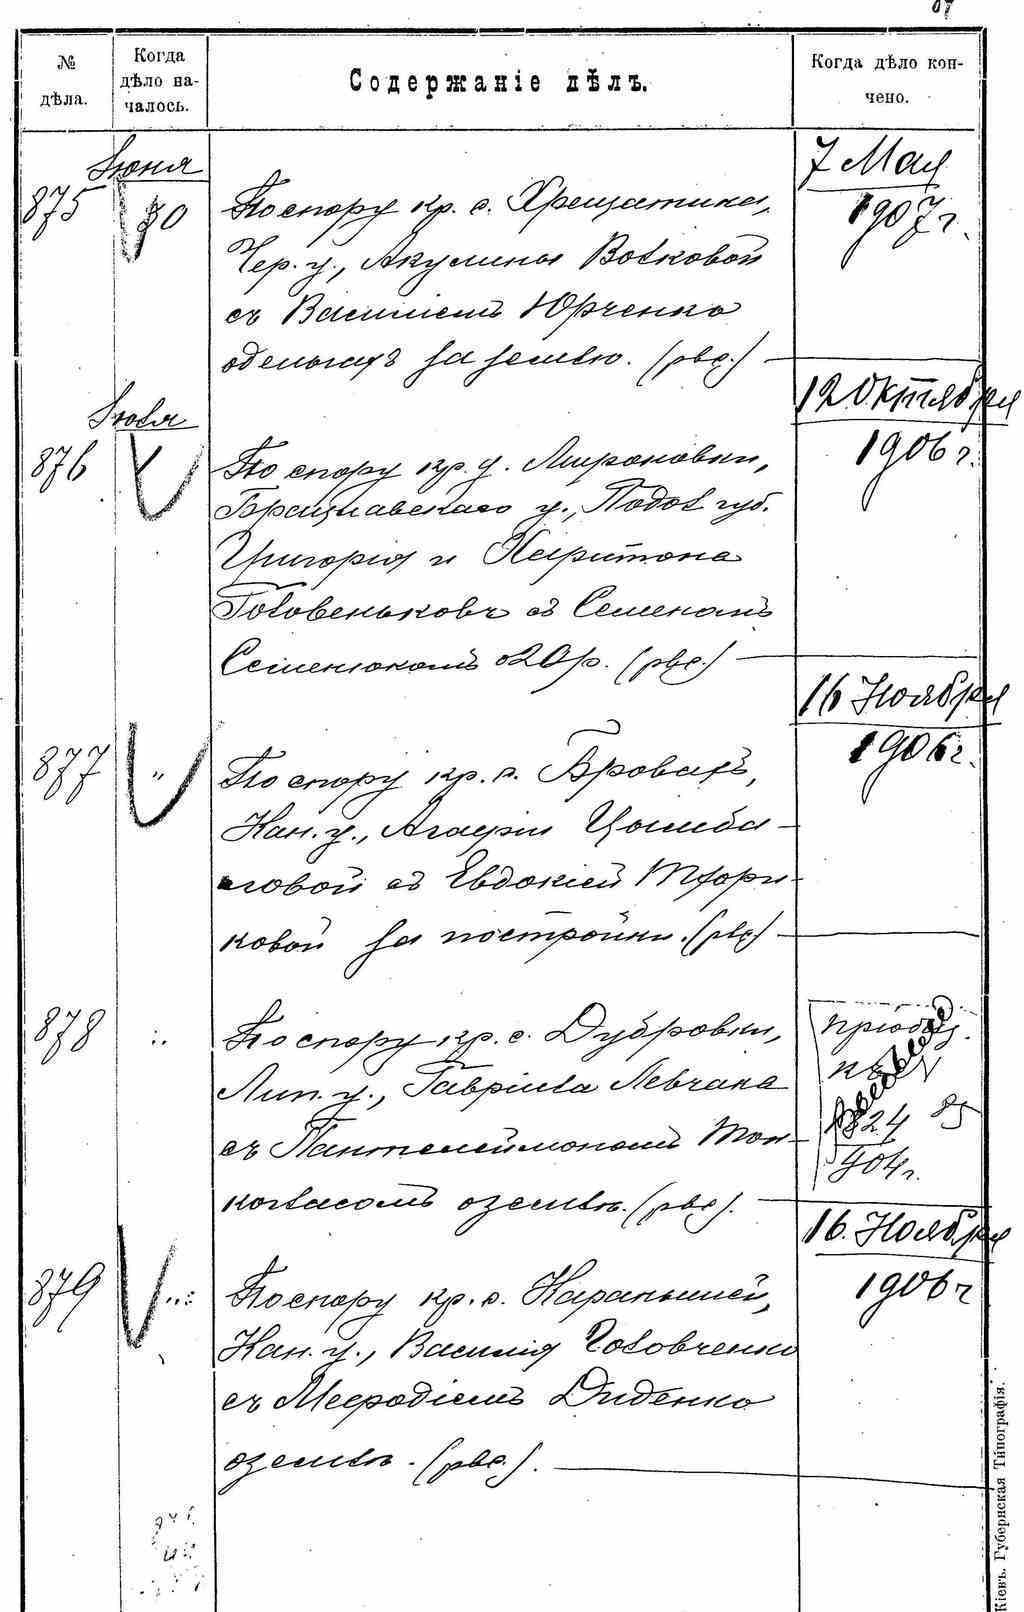 № дѣла.
Когда дѣло началось.
Содержаніе дѣлъ.
Когда дѣло кончено.
Іюня
7 Мая
875 30 По спору кр. с. Хрещатика, 1907 г.
Чер. у., Акулины Волковой
съ Василіемъ Юрченко
за землю. (рвс.)
12 Октября
Іюля
876 По спору кр. д. Мироновки, 1906 г.
Брацлавскаго у., Подол губ.
Григорія и Харитона
Головеньковъ съ Семеномъ
Семенюкомъ о 20 р. (рвс.)
16 Ноября
877 " По спору кр. с. Броваръ, 1906 г.
Кан. у., Агафіи Цымба-
ловой съ Евдокіей
ковой за постройки. (рвс)
878 По спору кр. с. Дубровки, пріобщ.
Лип. у., Гавріила Левчака къ
съ Пантелеймономъ Тон- 824
коголасомъ о землѣ. (рвс). 904 г.
16. Ноября
879 По спору кр. с. Карапышей, 1906 г
Кан. у., Василія Головченко
съ Мефодіемъ Диденко
о землѣ. (рвс.).
Кіевъ. Губернская Типографія.